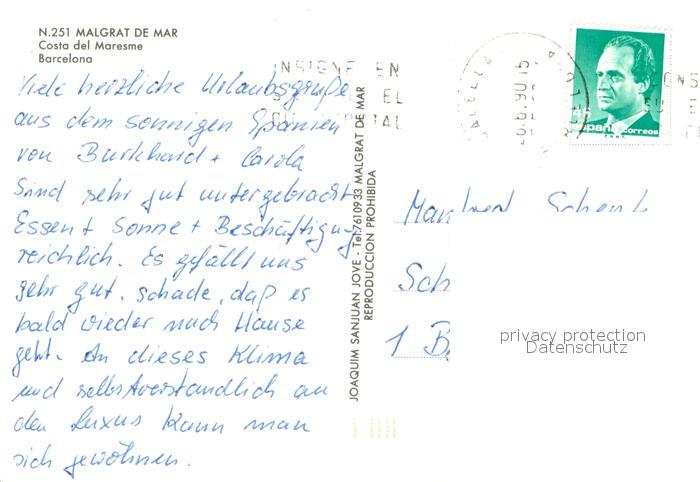 N.251 MALGRAT DE MAR
Costa del Maresme
Barcelona
Viele herzliche Urlaubsgrüße
aus dem sonnigen Spanien
von Burkhard + Carola
Sind sehr gut untergebracht
Essen + Sonne + Beschäftigung
reichlich. Es gefällt uns
sehr gut, schade, daß es
bald wieder nach Hause
geht. An dieses Klima
und selbstverständlich an
den Luxus kann man
sich gewöhnen.
JOAQUIM SANJUAN JOVE - Tel.7610933 MALGRAT DE MAR
REPRODUCCION PROHIBIDA
INSIGNE EN
EL
CALELLA
6.6.90
correos
Manfred Schenk
Sch
1 B
privacy protection
Datenschutz